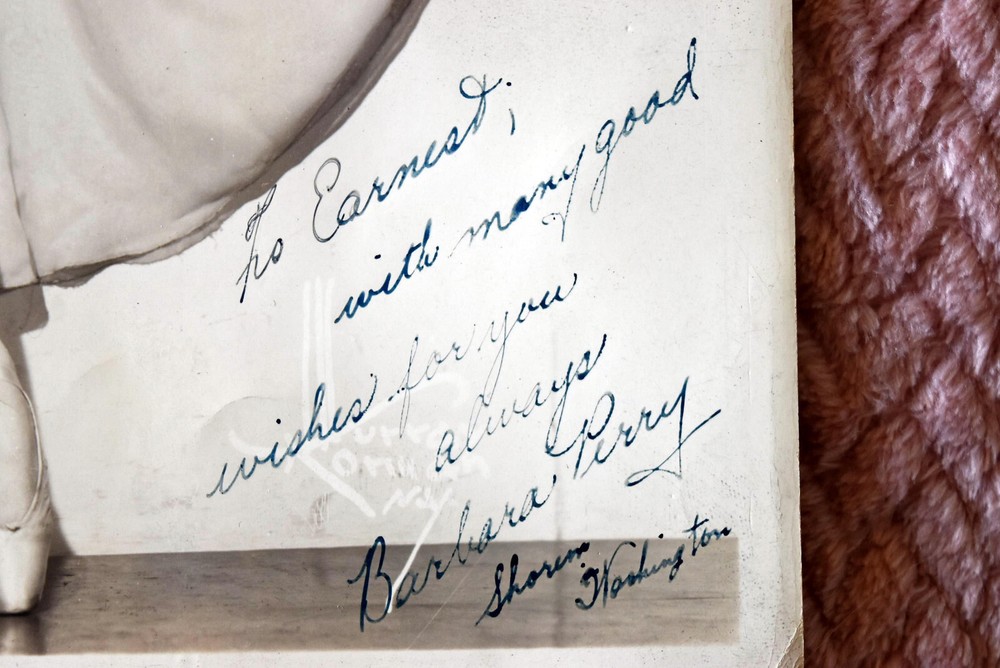 To Earnest,
with many good
wishes for you
always
Barbara Perry
Shorem
Washington
Murray
Korman
N.Y.